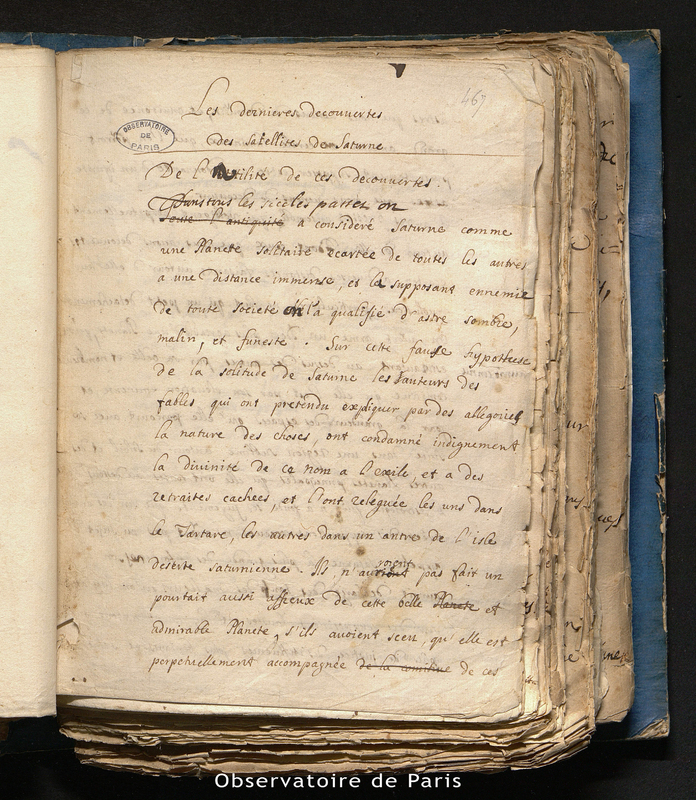 467
Les dernieres decouvertes
des Satellites de Saturne
OBSERVATOIRE
DE
PARIS
De l'utilité de ces decouvertes.
Dans tous les siecles passez on
toute l'antiquité a consideré Saturne comme
une Planete solitaire ecartée de toutes les autres
a une distance immense, et la supposant ennemie
de toute societé on l'a qualifié d'astre sombre,
malin, et funeste. Sur cette fausse hypothese
de la solitude de Saturne les auteurs des
fables qui ont pretendu expliquer par des allegories
la nature des choses, ont condamné indignement
la divinité de ce nom a l'exile, et a des
retraites cachées, et l'ont releguée les uns dans
le Tartare, les autres dans un antre de l'isle
deserte saturnienne. Ils n'auroient pas fait un
pourtait aussi affreux de cette belle Planete et
admirable Planete, s'ils avoient sceu, qu'elle est
perpetuellement accompagnée de la comitive de ces
Observatoire de Paris